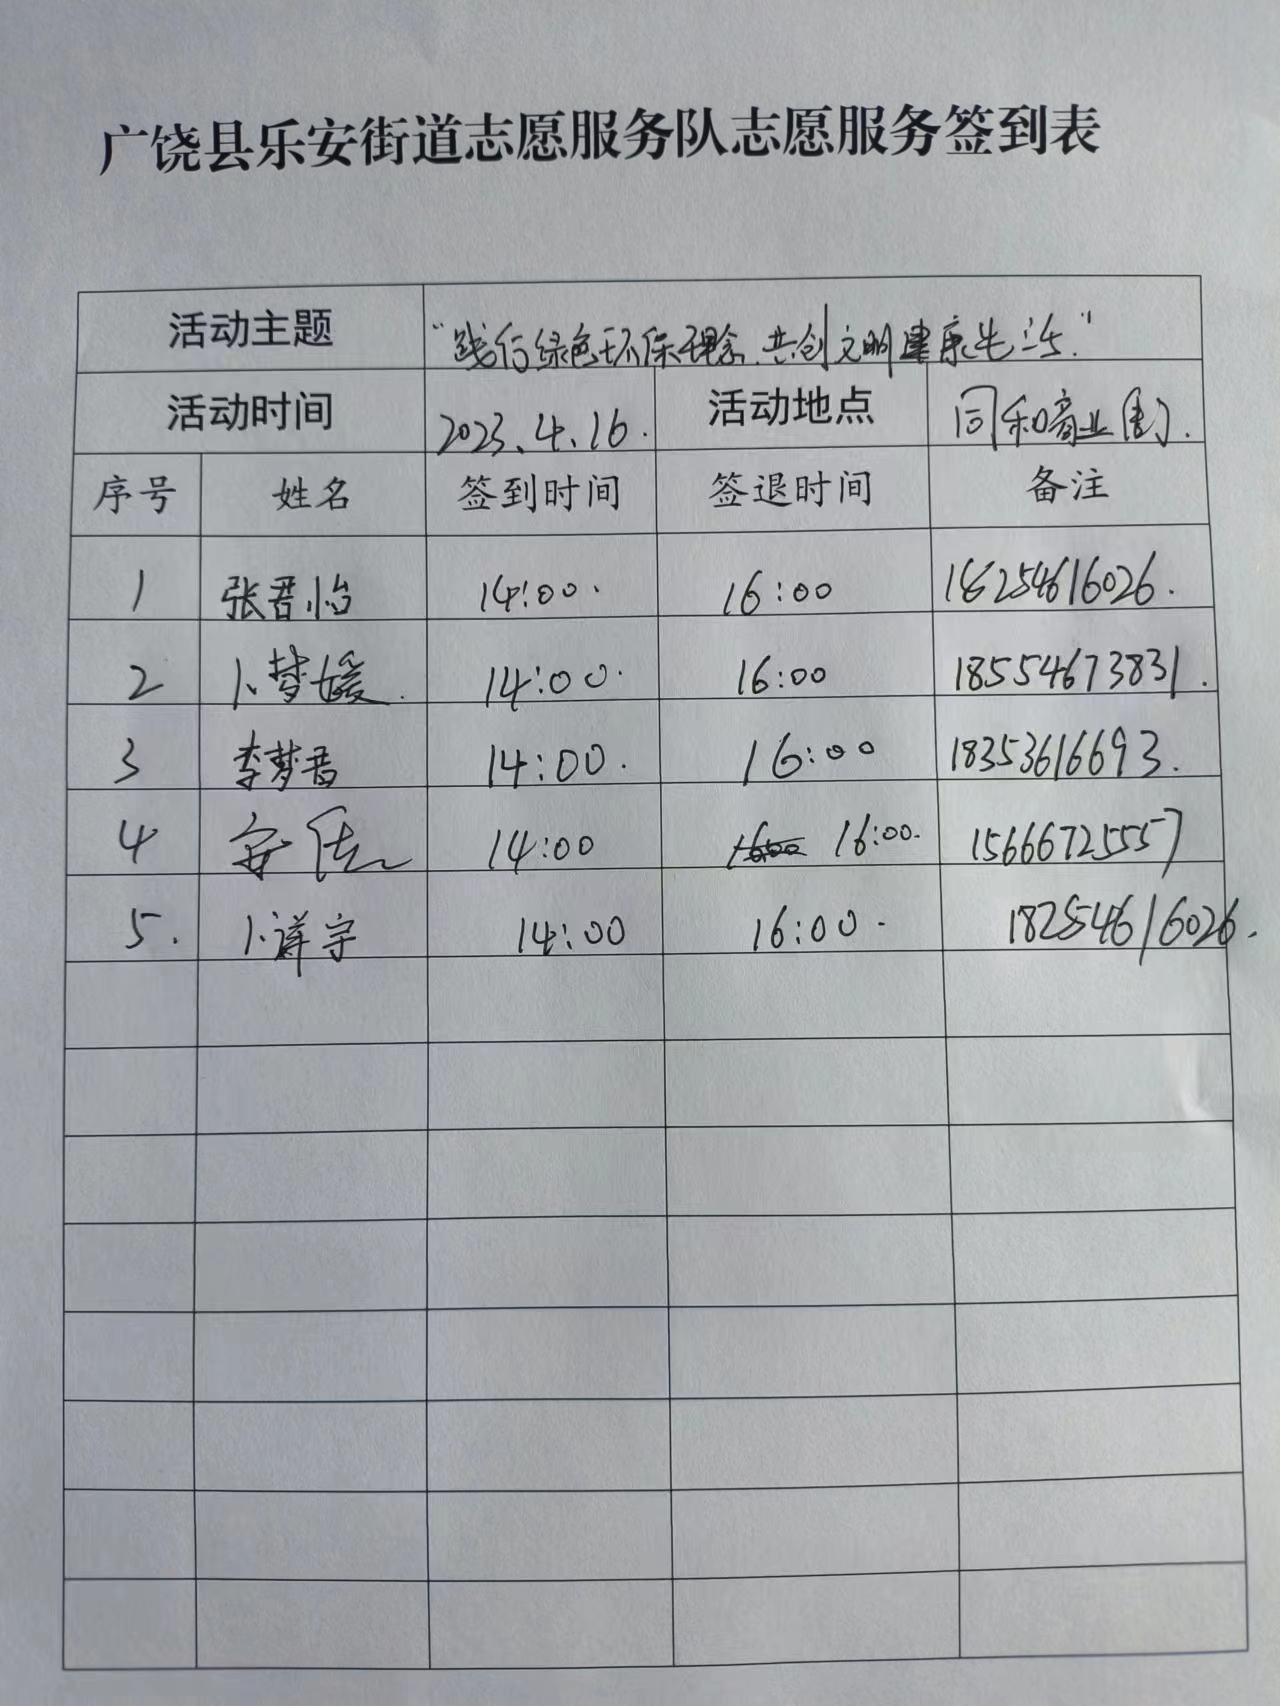 广饶县乐安街道志愿服务队志愿服务签到表
活动主题 "践行绿色环保理念.共创文明健康生活."
活动时间 2023.4.16. 活动地点 同和商业街.
序号 姓名 签到时间 签退时间 备注
1 张君怡 14:00. 16:00 18254616026.
2 卜梦媛. 14:00. 16:00 18554673831.
3 李梦君 14:00. 16:00 18353616693.
4 安 14:00 16:00. 15666725557
5. 卜 14:00 16:00. 18254616026.